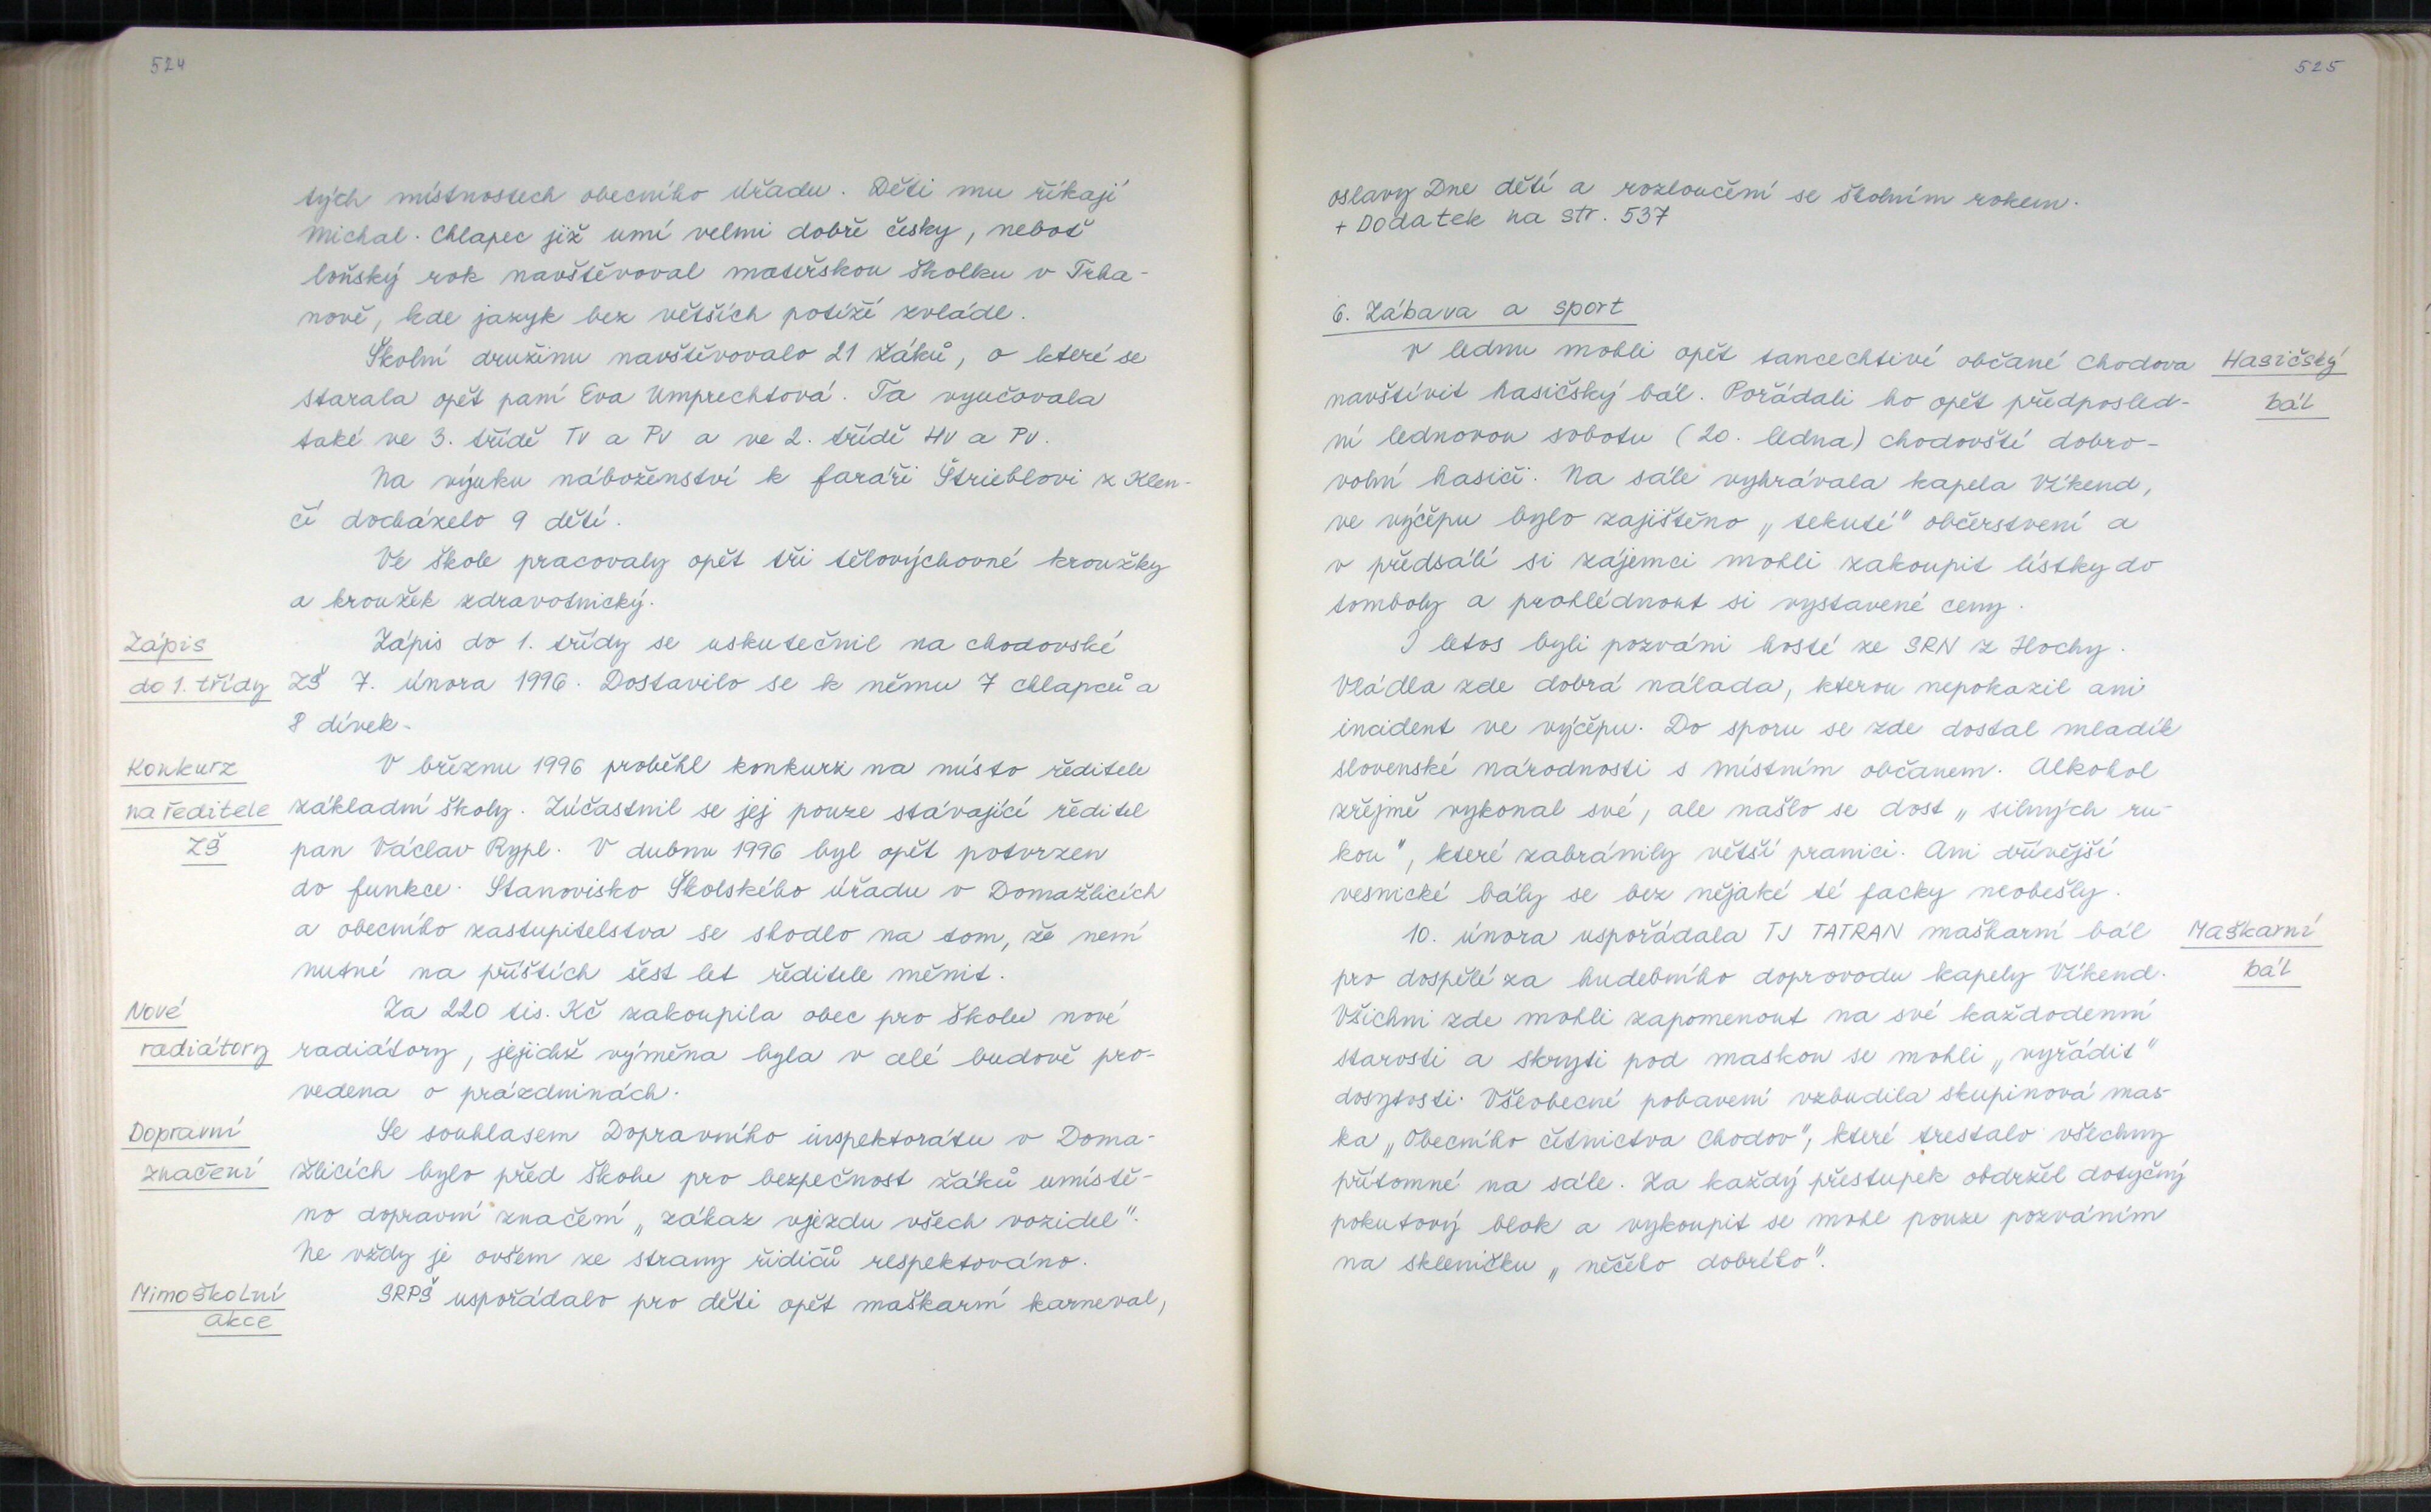 524
tých místnostech obecního úřadu. Děti mu říkají
Michal. Chlapec již umí velmi dobře česky, neboť
loňský rok navštěvoval mateřskou školku v Trha-
nově, kde jazyk bez větších potíží zvládl.
Školní družinu navštěvovalo 21 žáků, o které se
starala opět paní Eva Umprechtová. Ta vyučovala
také ve 3. třídě TV a PV a ve 2. třídě HV a PV.
Na výuku náboženství k faráři Štrieblovi z Klen-
čí docházelo 9 dětí.
Ve škole pracovaly opět tři tělovýchovné kroužky
a kroužek zdravotnický.
Zápis
do 1. třídy
Zápis do 1. třídy se uskutečnil na chodovské
ZŠ 7. února 1996. Dostavilo se k němu 7 chlapců a
8 dívek.
Konkurz
na ředitele
ZŠ
V březnu 1996 proběhl konkurz na místo ředitele
základní školy. Zúčastnil se jej pouze stávající ředitel
pan Václav Rypl. V dubnu 1996 byl opět potvrzen
do funkce. Stanovisko Školského úřadu v Domažlicích
a obecního zastupitelstva se shodlo na tom, že není
nutné na příštích šest let ředitele měnit.
Nové
radiátory
Za 220 tis. Kč zakoupila obec pro školu nové
radiátory, jejichž výměna byla v celé budově pro-
vedena o prázdninách.
Dopravní
značení
Se souhlasem Dopravního inspektorátu v Doma-
žlicích bylo před školu pro bezpečnost žáků umístě-
no dopravní značení „zákaz vjezdu všech vozidel".
Ne vždy je ovšem ze strany řidičů respektováno.
Mimoškolní
akce
SRPŠ uspořádalo pro děti opět maškarní karneval,
525
oslavy Dne dětí a rozloučení se školním rokem.
+ Dodatek na str. 537
6. Zábava a sport
Hasičský
bál
V lednu mohli opět tancechtiví občané Chodova
navštívit hasičský bál. Pořádali ho opět předposled-
ní lednovou sobotu (20. ledna) chodovští dobro-
volní hasiči. Na sále vyhrávala kapela Víkend,
ve výčepu bylo zajištěno „tekuté" občerstvení a
v předsálí si zájemci mohli zakoupit lístky do
tomboly a prohlédnout si vystavené ceny.
I letos byli pozváni hosté ze SRN z Hochy.
Vládla zde dobrá nálada, kterou nepokazil ani
incident ve výčepu. Do sporu se zde dostal mladík
slovenské národnosti s místním občanem. Alkohol
zřejmě vykonal své, ale našlo se dost „silných ru-
kou", které zabránily větší pranici. Ani dřívější
vesnické bály se bez nějaké té facky neobešly.
Maškarní
bál
10. února uspořádala TJ TATRAN maškarní bál
pro dospělé za hudebního doprovodu kapely Víkend.
Všichni zde mohli zapomenout na své každodenní
starosti a skryti pod maskou se mohli „vyřádit"
dosytosti. Všeobecné pobavení vzbudila skupinová mas-
ka „Obecního četnictva Chodov", které trestalo všechny
přítomné na sále. Za každý přestupek obdržel dotyčný
pokutový blok a vykoupit se mohl pouze pozváním
na skleničku „něčeho dobrého".